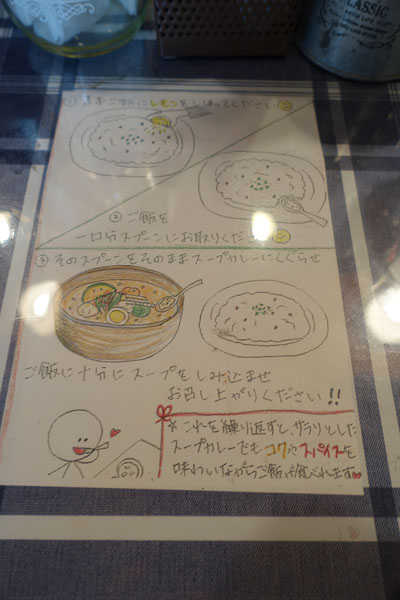 ① まずご飯にレモンをしぼってください
② ご飯を
一口分スプーンにお取りください
③ そのスプーンをそのままスープカレーにくぐらせ
ご飯に十分にスープをしみ込ませ
お召し上がりください!!
※これを繰り返すと、サラリとした
スープカレーでもコクやスパイスを
味わいながらご飯が食べれます
CLASSIC